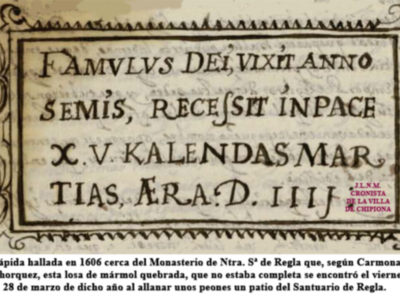 FAMVLVS DEI, VIXIT ANNO
SEMIS, RECEſSIT INPACE
X.V. KALENDAS MAR
TIAS, ÆRA. D. IIIJ.
J.L.N.M.
CRONISTA
DE LA VILLA
DE CHIPIONA
ápida hallada en 1606 cerca del Monasterio de Ntra. Sª de Regla que, según Carmona
horquez, esta losa de mármol quebrada, que no estaba completa se encontró el vierne
28 de marzo de dicho año al allanar unos peones un patio del Santuario de Regla.